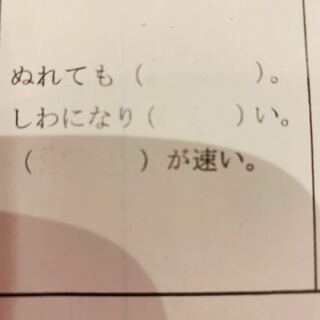 ぬれても（　　　　）。
しわになり（　　　）い。
（　　　　）が速い。